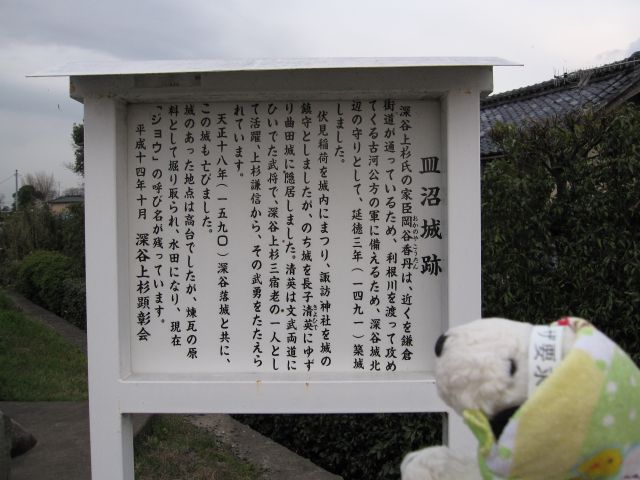 皿沼城跡
深谷上杉氏の家臣岡谷香丹は、近くを鎌倉
おかのやこうたん
街道が通っているため、利根川を渡って攻め
てくる古河公方の軍に備えるため、深谷城北
辺の守りとして、延徳三年(一四九一)築城
しました。
伏見稲荷を城内にまつり、諏訪神社を城の
鎮守としましたが、のち城を長子清英にゆず
きよひで
り曲田城に隠居しました。清英は文武両道に
ひいでた武将で、深谷上杉三宿老の一人とし
て活躍、上杉謙信から、その武勇をたたえら
れています。
天正十八年(一五九〇)深谷落城と共に、
この城も亡びました。
城のあった地点は高台でしたが、煉瓦の原
料として掘り取られ、水田になり、現在
「ジョウ」の呼び名が残っています。
平成十四年十月 深谷上杉顕彰会